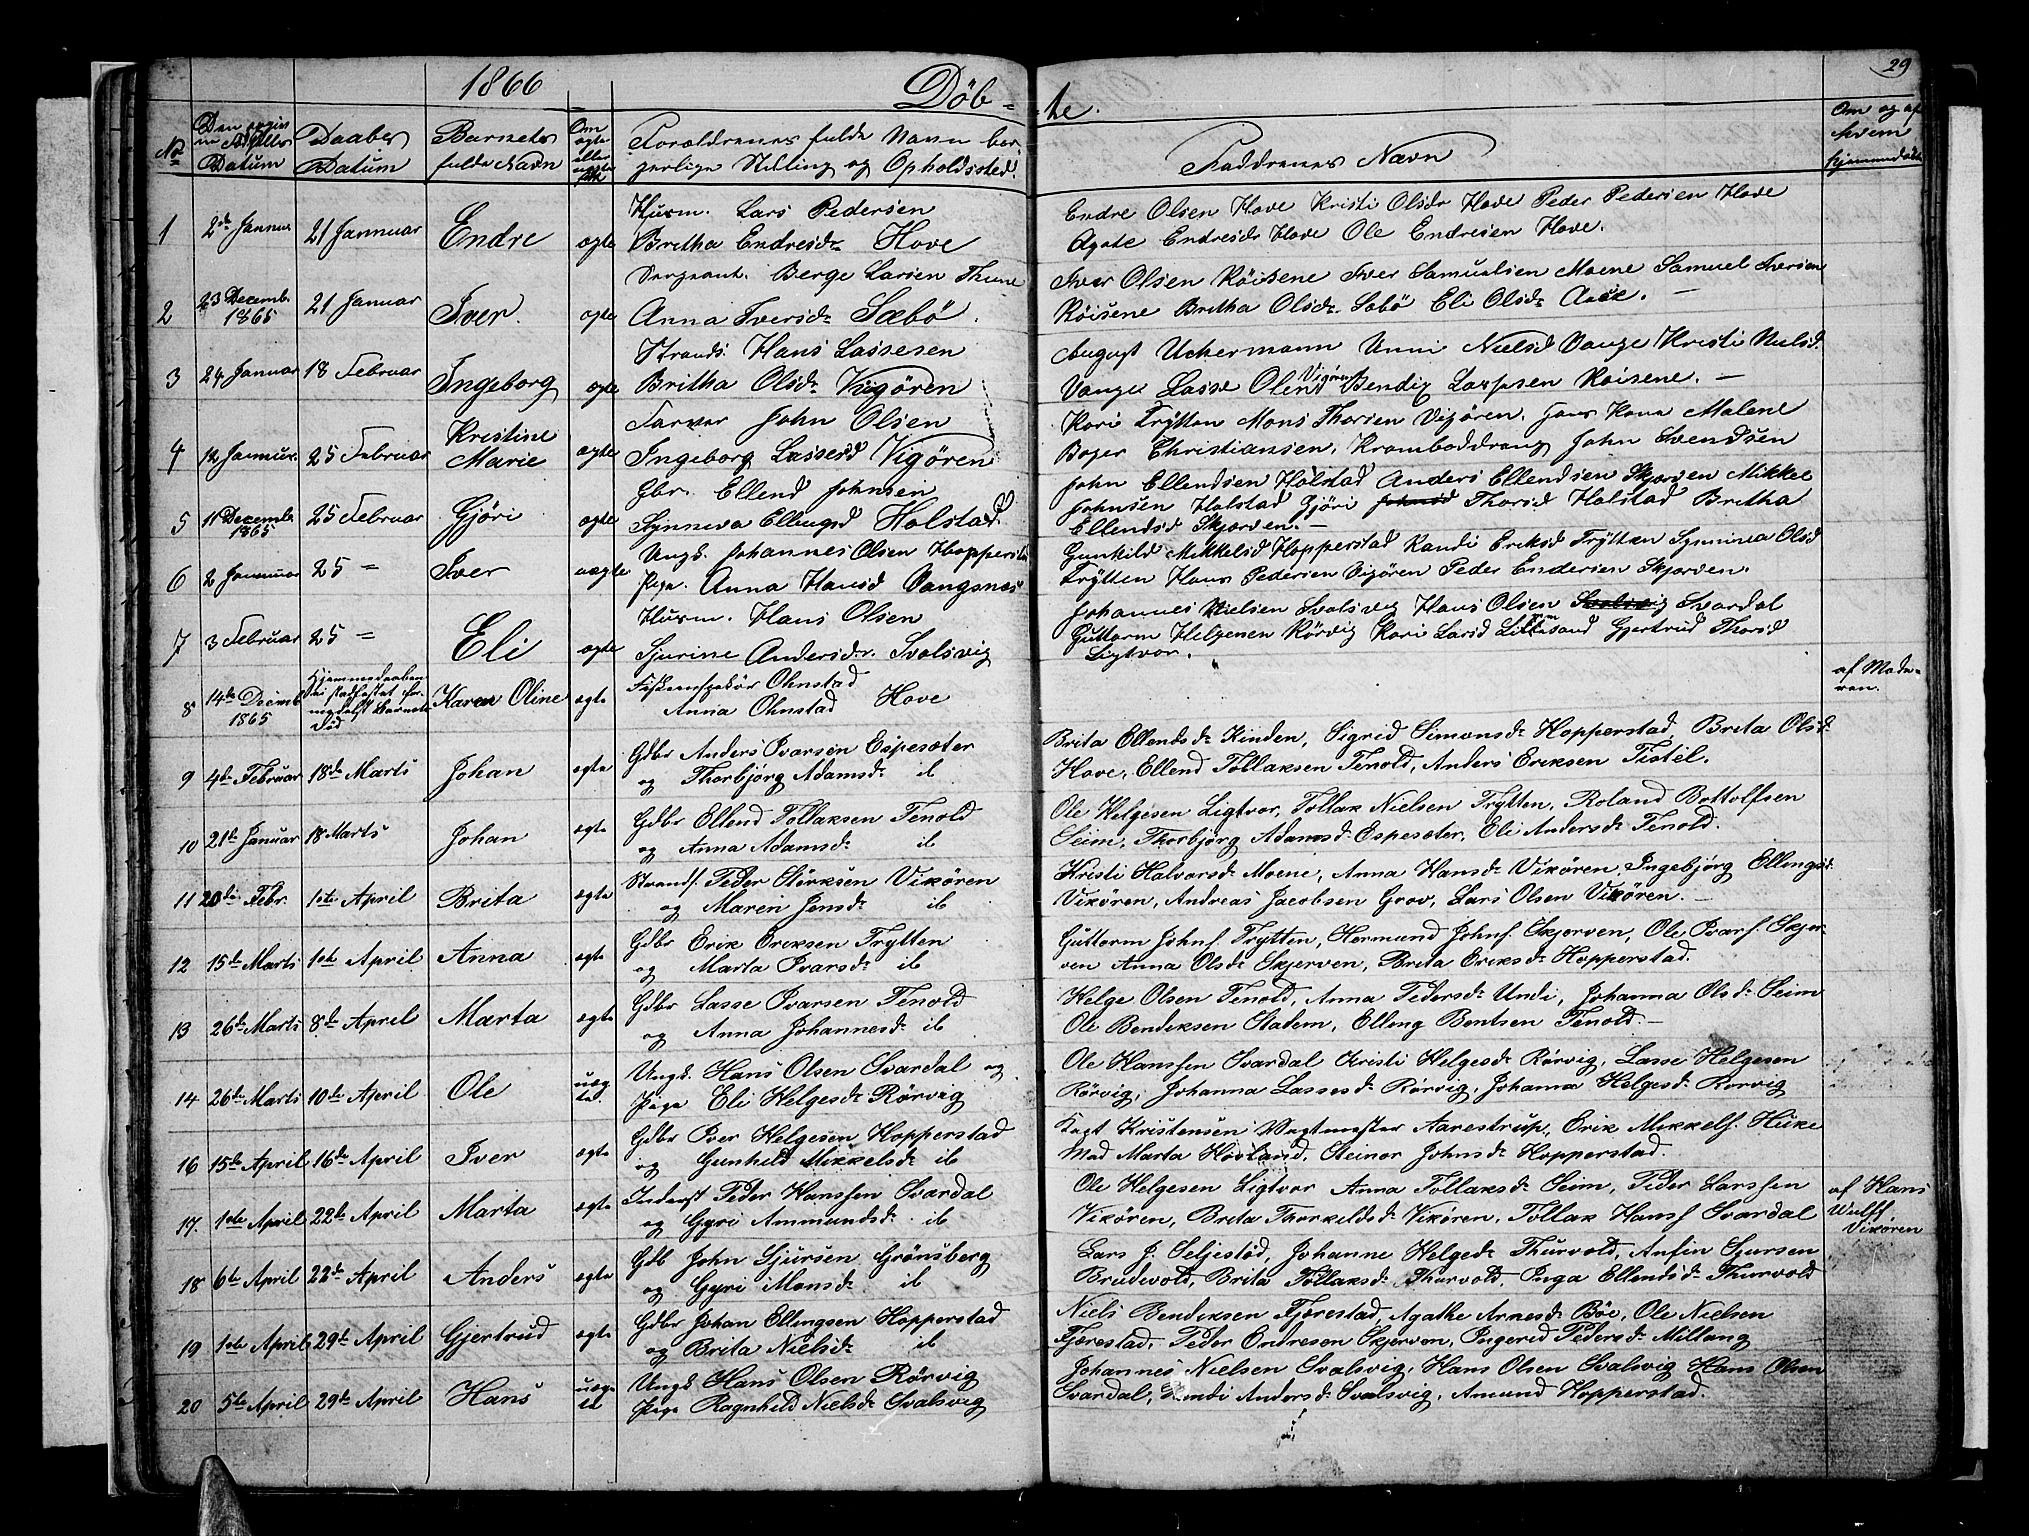 1866
Döb-
te.
29
No
Datum
Daabes
Datum
Barnets
fulde Navn
Om
ægte
eller
uægte
født
Forældrenes fulde Navn bor-
gerlige Stilling og Opholdssted.
Faddrenes Navn
Om og af
hvem
hjemmedöbt
1 2de Januar 21 Januar Endre ægte
Husm. Lars Pedersen
Britha Endresdr Hove
Endre Olsen Hove Kristi Olsdr Hove Peder Pedersen Hove
Agate Endresdr Hove Ole Endresen Hove.
2 23 Decemb. 1865 21 Januar Iver. ægte
Sergeant. Berge Larsen Thune
Anna Iversdr Sæbö.
Iver Olsen Röisene Iver Samuelsen Moene Samuel Iversen
Röisene Britha Olsdr. Sæbö Eli Olsdr Aase. —
3 24 Januar 18 Februar Ingeborg ægte
Strands. Hans Lassesen
Britha Olsdr Vigören
August Uchermann Unni Nielsd Vange Kristi Nielsd.
Vange Lasse Olsen Vigören Bendix Larssen Röisene. —
4 12 Januar. 25 Februar Kristine Marie ægte
Farver John Olsen
Ingeborg Lassesd Vigören
Kari Trytten Mons Thorsen Vigören. Malene
Böger Christiansen, Kramboddreng John Svendsen
5 11 Decembr 1865 25 Februar Gjöri ægte
Gbr. Ellend Johnsen
Synneva Ellingsd Holstad.
John Ellendsen Holstad Anders Ellendsen Skjerven Mikkel
Johnsen Holstad Gjöri Johnsd Thorsd Holstad Britha
Ellendsd Skjerven. —
6 2 Januar 25 = Iver uægte
Ungk. Johannes Olsen Hopperstad
Pige. Anna Hansd Vangsnæs
Gunhild Mikkelsd Hopperstad Randi Eriksd Trytten Synneva Olsd
Trytten Hans Pedersen Vigören Peder Endersen Skjerven.
7 3 Februar 25 = Eli ægte
Husm. Hans Olsen
Sjurine Andersdr. Svolsvig
Johannes Nielsen Svolsvig Hans Olsen Svolsvig Svardal
Guttorm Helgesen Rörvig Kari Larsd Gjertrud Thorsd
Ligtvor.
8 14de Decemb 1865
Hjemmedaaben
ei stadfæstet for-
medelst Barnets
Död
Karen Oline ægte
Ohnstad
Anna Ohnstad Hove
af Mode-
ren.
9 4de Februar 18de Marts Johan ægte
Gdbr Anders Ivarsen Espesæter
og Thorbjörg Adamsdr ib
Brita Ellendsdr Kinden, Sigrid Simonsdr Hopperstad, Brita Olsdr
Hove, Ellend Tollaksen Tenold, Anders Eriksen Tistel.
10 21de Januar 18 Marts Johan ægte
Gdbr Ellend Tollaksen Tenold
og Anna Adamsdr ib
Ole Helgesen Ligtvor, Tollak Nielsen Trytten, Roland Bottolfsen
Seim, Thorbjörg Adamsdr Espesæter, Eli Andersdr Tenold.
11 20de Febr. 1ste April Brita ægte
Strands. Peder Stirksen Vikören
og Maren Jensdr ib
Kristi Halvorsdr Moene, Anna Hansdr Vikören, Ingebjörg Ellingsdr
Vikören, Andreas Jacobsen Grov, Lars Olsen Vikören. —
12 15de Marts 1ste April Anna ægte
Gdbr Erik Eriksen Trytten
og Marta Ivarsdr ib
Guttorm Johns. Trytten, Hermund Johns. Skjerven, Ole Ivars. Skjer-
ven Anna Olsdr Skjerven, Brita Eriksdr Hopperstad.
13 26de Marts 8de April Marta ægte
Gdbr Lasse Ivarsen Tenold
og Anna Johannesdr ib
Helge Olsen Tenold, Anna Pedersdr Undi, Johanna Olsdr Seim
Ole Bendiksen Stadem, Elling Bentsen Tenold. —
14 26de Marts 10de April Ole uægte
Ungk. Hans Olsen Svardal og
Pige Eli Helgesdr Rörvig
Ole Hanssen Svardal Kristi Helgesdr Rörvig, Lasse Helgesen
Rörvig, Johanna Lassesdr Rörvig, Johanna Helgesdr Rörvig
16 15de April 16de April Iver ægte
Gdbr Iver Helgesen Hopperstad
og Gunhild Mikkelsdr ib
Kristensen Vagtmester Aarestrup, Erik Mikkels. Huke
Mad Marta Hovland, Steinor Johnsdr Hopperstad.
17. 1ste April 22de April Marta ægte
Inderst Peder Hanssen Svardal
og Gyri Ammundsdr ib
Ole Helgesen Ligtvor Anna Tollaksdr Seim, Peder Larssen
Vikören, Brita Thorkildsdr Vikören, Tollak Hanss Svardal
af Hans
Wulff
Vikören
18 6te April 22de April Anders ægte
Gdb John Sjursen Grönsberg
og Gyri Monsdr ib
Lars J. Seljestad, Johanne Helgedr Thurvold, Anfin Sjursen
Brudevold, Brita Tollaksdr Thurvold, Inga Ellendsdr Thurvold
19 1ste April 29de April Gjertrud ægte
Gdbr Johan Ellingsen Hopperstad
og Brita Nielsdr ib
Niels Bendiksen Fjærestad, Agathe Arnesdr Böe, Ole Nielsen
Fjærestad, Peder Endresen Skjerven, Ingerid Pedersdr Millang
20 5te April 29de April Hans uægte
Ungk Hans Olsen Rörvig
Pige Ragnhild Nielsdr Svalsvig
Johannes Nielsen Svalsvig, Hans Olsen Svalsvig Hans Olsen
Svardal, Randi Andersdr Svalsvig, Amund Hopperstad.